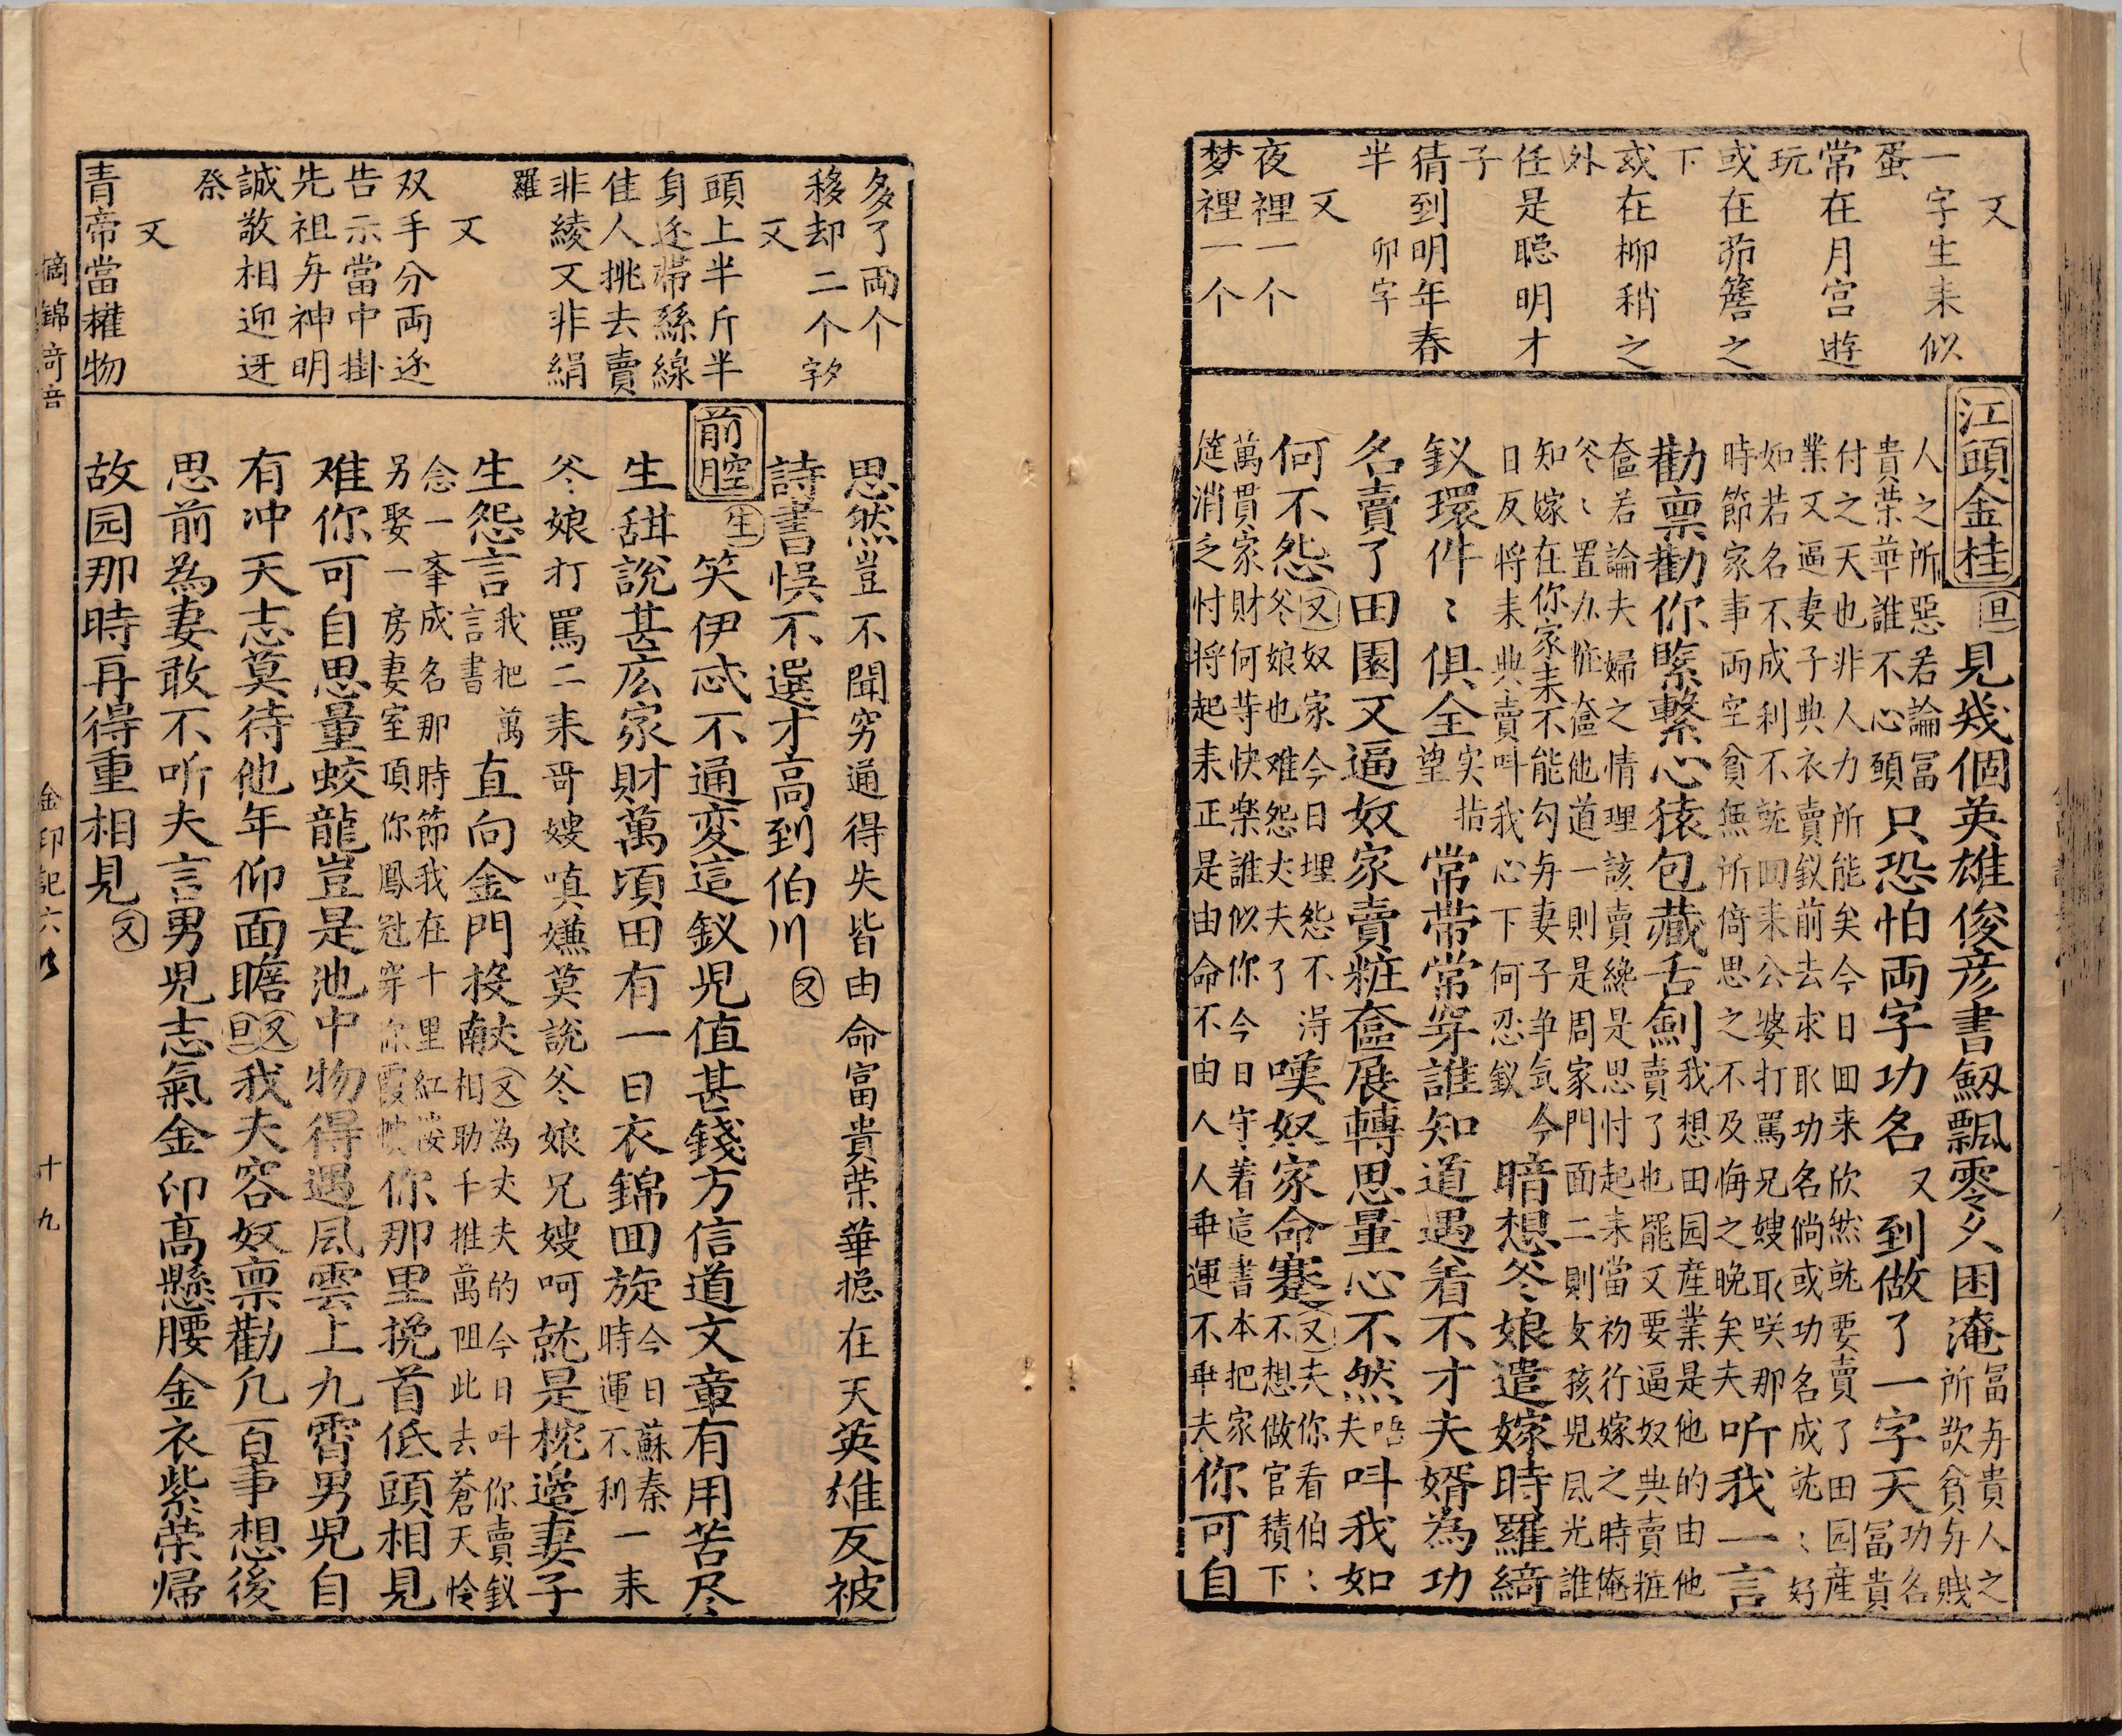 又
一字生来似
蛋
常在月宫遊
玩
或在茆簷之
下
或在柳稍之
外
任是聪明才
子
猜到明年春
半 卯字
又
夜裡一个
梦裡一个
江頭金桂 旦 見幾個英雄俊彦書劔飄零久困淹 冨与貴人之
所欲貧与賤
人之所惡若論冨
貴荣華誰不心頭 只恐怕両字功名 又 到做了一字天 功名
冨貴
付之天也非人力所能矣今日回来欣然就要賣了田园産
業又逼妻子典衣賣釵前去求取功名倘或功名成就〻好
如若名不成利不就回来公婆打罵兄嫂取咲那
時節家事両空貧無所倚思之不及悔之晚矣夫 听我一言
勸禀勸你緊繫心猿包藏舌劍 我想田园産業是他的由他
賣了也罷又要逼奴典賣粧
奩若論夫婦之情理該賣纔是思忖起来當初行嫁之時俺
爹〻置办粧奩他道一則是周家門面二則女孩児風光誰
知嫁在你家来不能勾与妻子争气今
日反将来典賣叫我心下何忍釵 暗想爹娘遣嫁時羅綺
釵環件〻俱全 实指
望 常带常穿誰知道遇着不才夫婿為功
名賣了田園又逼奴家賣粧奩展轉思量心不然 唔
夫 叫我如
何不怨 又 奴家今日埋怨不得
爹娘也难怨丈夫了 嘆奴家命蹇 又 夫你看伯〻
不想做官積下
萬貫家財何等快楽誰似你今日守着這書本把家
筵消乏忖将起来正是由命不由人人乖運不乖夫 你可自
多了両个
移却二个 夕字
又
頭上半斤半
身边帶絲線
佳人挑去賣
非綾又非絹
羅
又
双手分両边
告示當中掛
先祖与神明
誠敬相迎迓
祭
又
青帝當權物
思然豈不聞穷通得失皆由命富貴荣華揔在天英雄反被
詩書悮不選才高到伯川 又
前腔 生 笑伊忒不通变這釵児值甚錢方信道文章有用苦尽
生甜說甚広家財萬頃田有一日衣錦回旋 今日蘇秦一来
時運不利
爹娘打罵二来哥嫂嗔嫌莫說爹娘兄嫂呵就是枕邊妻子
生怨言 我把萬
言書 直向金門投献 又 為丈夫的今日叫你賣釵
相助千推萬阻此去蒼天怜
念一挙成名那時節我在十里紅楼
另娶一房妻室頂你鳳冠穿你霞帔 你那里挽首低頭相見
难你可自思量蛟龍豈是池中物得遇風雲上九霄男児自
有冲天志莫待他年仰面瞻 又 旦 我夫容奴禀勸凢百事想後
思前為妻敢不听夫言男児志氣金印髙懸腰金衣紫荣帰
故园那時再得重相見 又
摘錦奇音
金印記六卷
十九